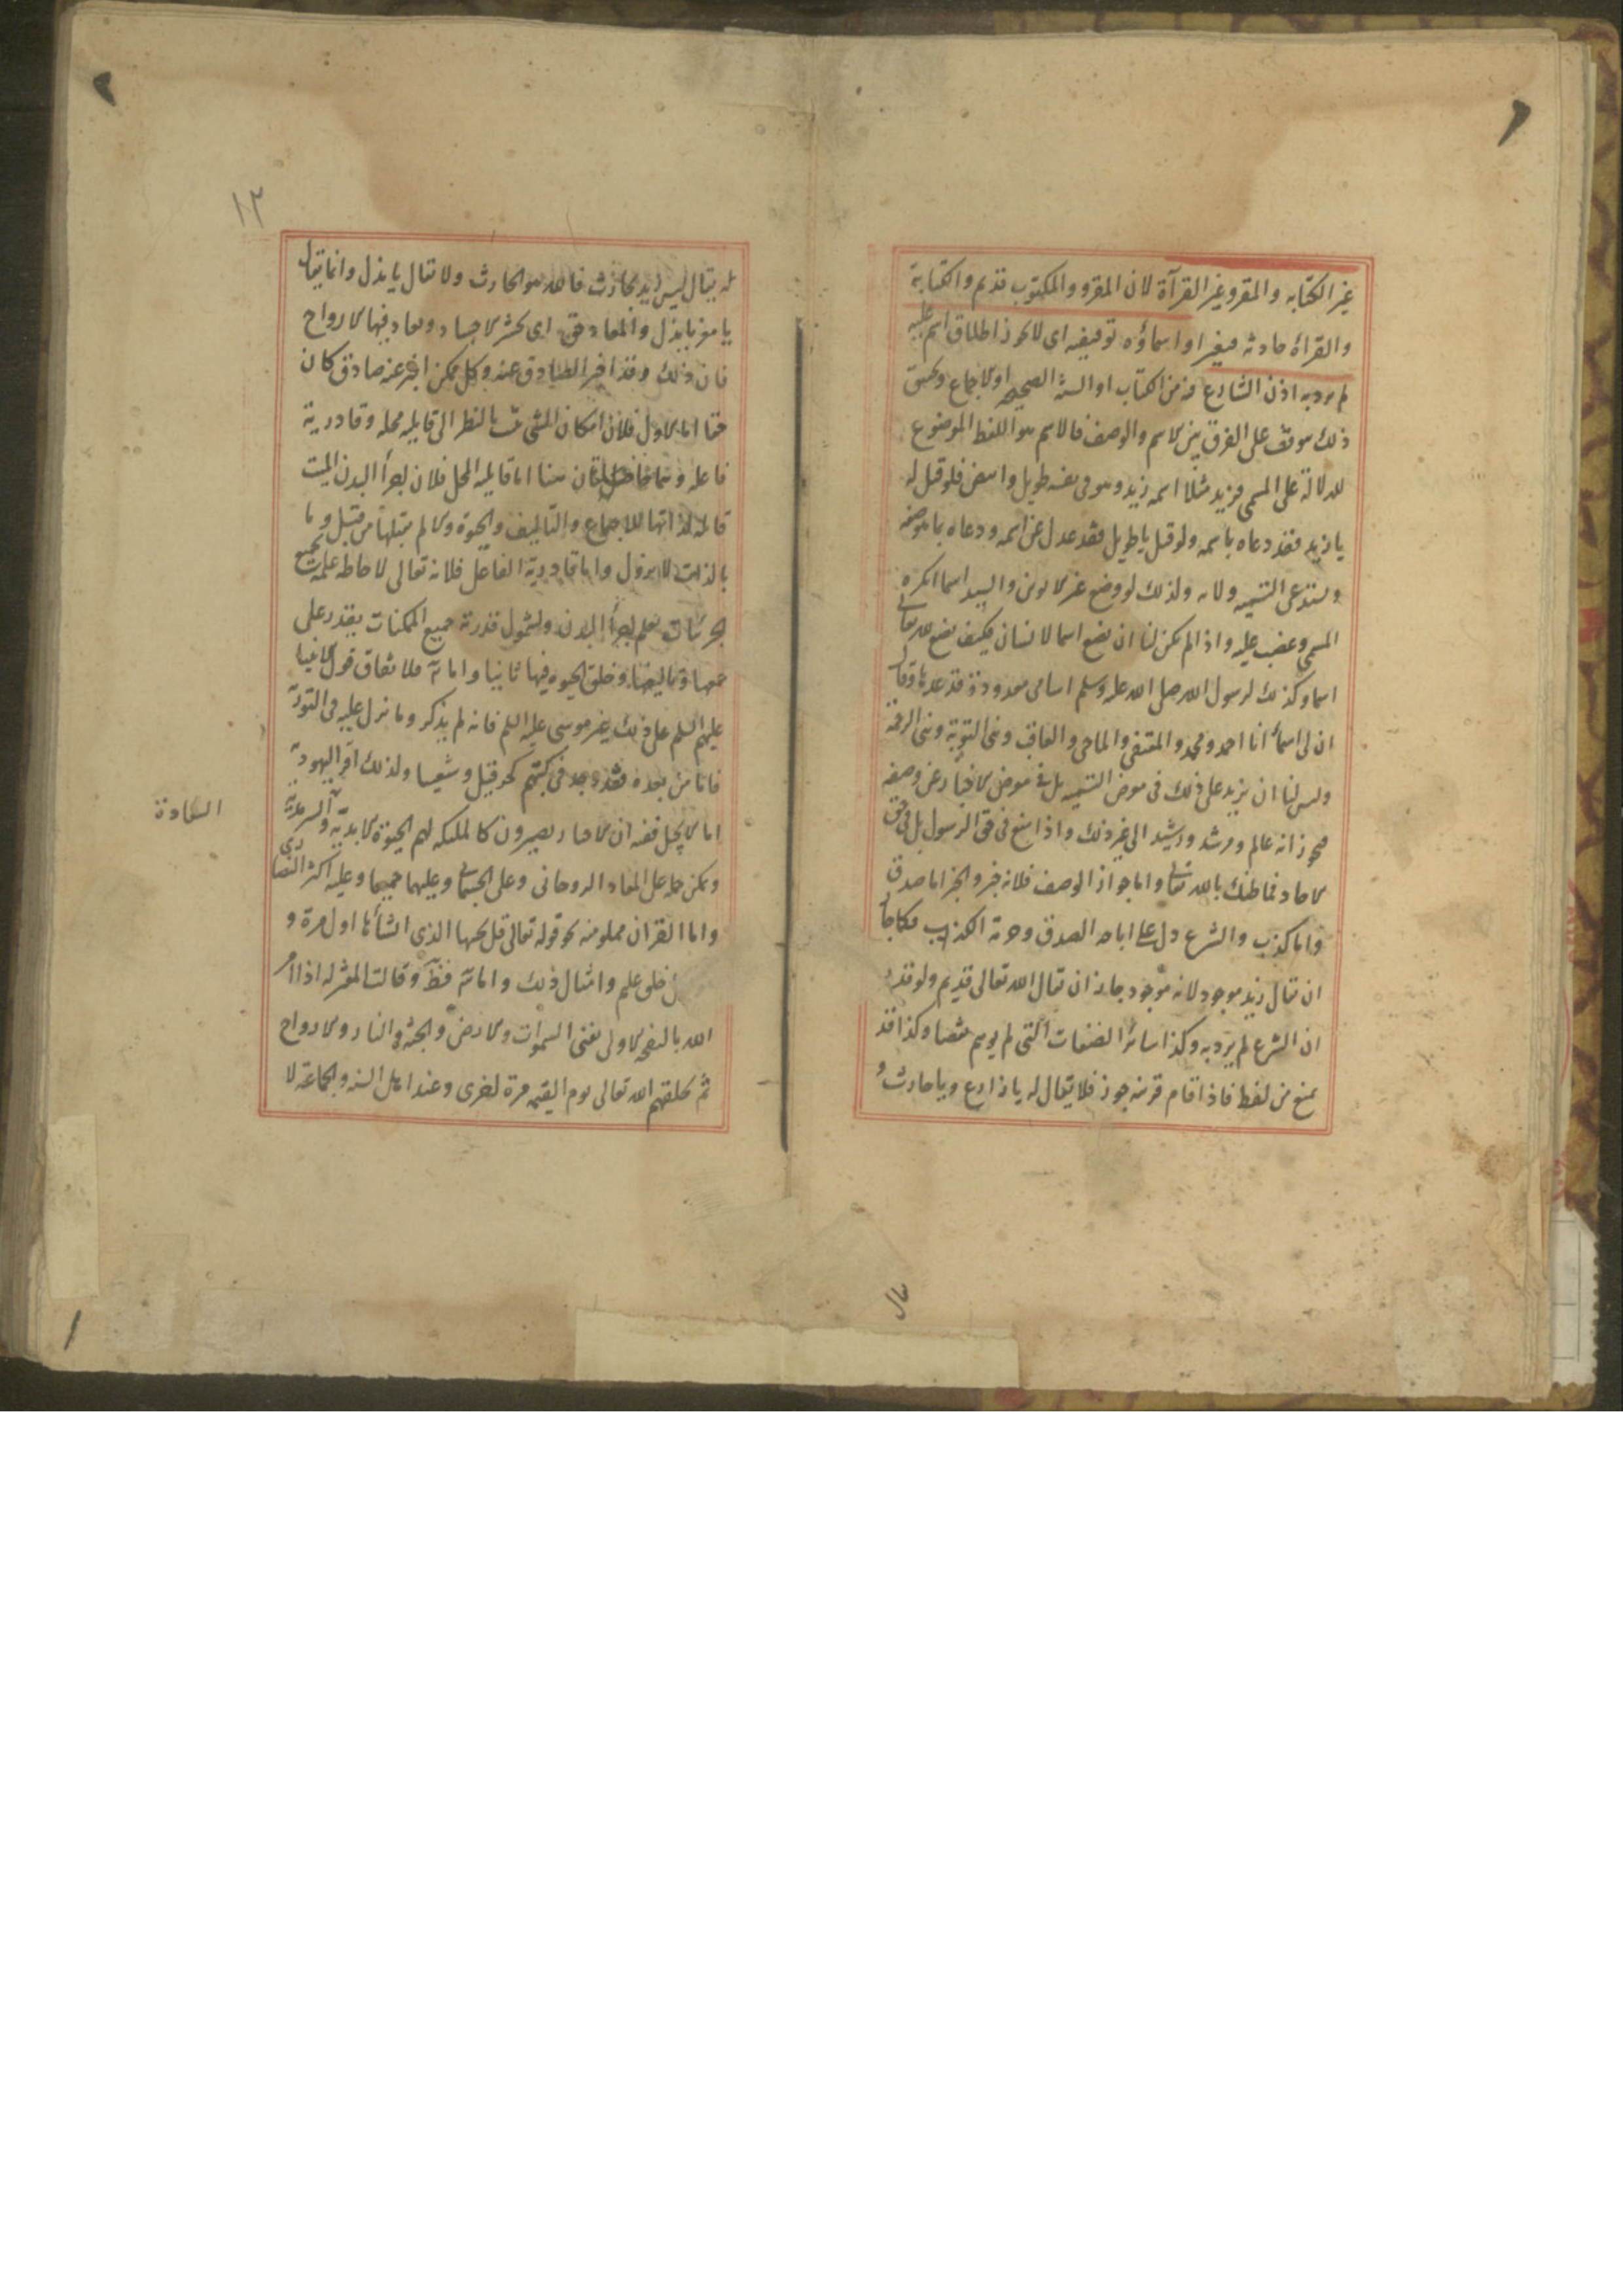 غير الكتابه والمقرو غير القرآة لان المقرو والمكتوب قديم والكتابة
والقرأة حادثه واسماؤه توقيفيه اى لا يجوز اطلاق اسم عليه
لم يرد به اذن الشارع من الكتاب او السنة الصحيحه او الاجماع وتحقيق
ذلك موقف على الفرق بين الاسم والوصف فالاسم هو اللفظ الموضوع
للدلالة على المسمى فزيد مثلا اسمه زيد وهو فى نفسه طويل وابيض فلو قيل له
يا زيد فقد دعاه باسمه ولو قيل يا طويل فقد عدل عن اسمه ودعاه بما وصفه
ويستدعى التسميه ولايه ولذلك لو وضع غير الابوين والسيد اسما انكره
المسمى وغضب عليه واذا لم يكن لنا ان نضع اسما لانسان فكيف نضع لله تعالى
اسما وكذلك لرسول الله صلى الله عليه وسلم اسامى معدودة قد عدها وقال
ان لى اسمأ انا احمد ومحمد والمقتفى والماحى والعاقب ونبى التوبة ونبى الرحمة
وليس لنا ان نزيد على ذلك فى معرض التسميه بل فى معرض الاخبار عن وصفه
فيجوز انه عالم ومرشد ورشيد الى غير ذلك واذا منع فى حق الرسول بل فى حق
الاحاد فما ظنك بالله تعالى واما جواز الوصف فلانه خبر والخبر اما صدق
واما كذب والشرع دل على اباحه الصدق وحرمة الكذب فكما جاز
ان يقال زيد موجود لانه موجود جاز ان يقال الله تعالى قديم ولو قدر
ان الشرع لم يرد به وكذا سائر الصفات التى لم يوهم نقصا وكذا قد
يمنع من لفظ فاذا اقام قرينه جوز فلا يقال له يا زارع ويا حارث و
يقال
له يقال ليس زيد بحارث فالله هو الحارث ولا يقال يا مذل وانما يقال
يا معز يا مذل والمعاد حق اى يحشر الاجساد ويعاد فيها الارواح
فان ذلك وقد اخبر الصادق عنه وكل ممكن اخبر عنه صادق كان
حقا اما الاول فلان امكان الشئ بالنظر الى قابليه محله وقادرية
فاعله وهما حاصلتان هنا اما قابليه المحل فلان اجزأ البدن الميت
قابله لذاتها للاجتماع والتأليف والحيوة والا لم يقبلها من قبل وما
بالذات لا يزول واما قادرية الفاعل فلانه تعالى لاحاطه علمه بجميع
الجزئيات يعلم اجزأ البدن ولشمول قدرته جميع الممكنات يقدر على
جمعها وتاليفها وخلق الحيوه فيها ثانيا واما فلاتفاق قول الانبيا
عليهم السلم على ذلك غير موسى عليه السلم فانه لم يذكر وما نزل عليه فى التورية
فاما من بعده فقد وجد فى كتبهم كحزقيل وشعيا ولذلك اقر اليهود به
اما الانجيل ففيه ان الاخيار يصيرون كالملئكه لهم الحيوة الابدية والسرمدية
السعادة
ويمكن حمله على المعاد الروحانى وعلى الجسمانى وعليهما جميعا وعليه اكثر النصارى
واما القران فمملو منه نحو قوله تعالى قل يحييها الذى انشأها اول مرة و
خلق عليم وامثال ذلك وقالت المعتزله اذا امر
الله بالنفخه الاولى تفنى السموات والارض والجنة والنار والارواح
ثم يخلقهم الله تعالى يوم القيمه مرة اخرى وعند اهل السنه والجماعة لا
١٢